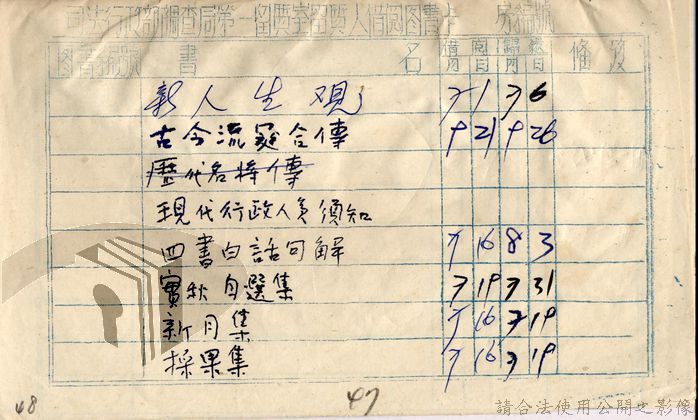 司法行政部調查局第一留質室留質人借閱圖書卡 房 編號
圖書編號 書 名 借閱 月 日 歸還 月 日 備 攷
新人生观 7 1 7 6
古今流寇合傳 9 21 9 26
歷代名将傳
現代行政人員須知
四書白話句解 7 16 8 3
實秋自選集 7 19 7 31
新月集 7 16 7 19
採果集 7 16 7 19
48 47
請合法使用公開之影像